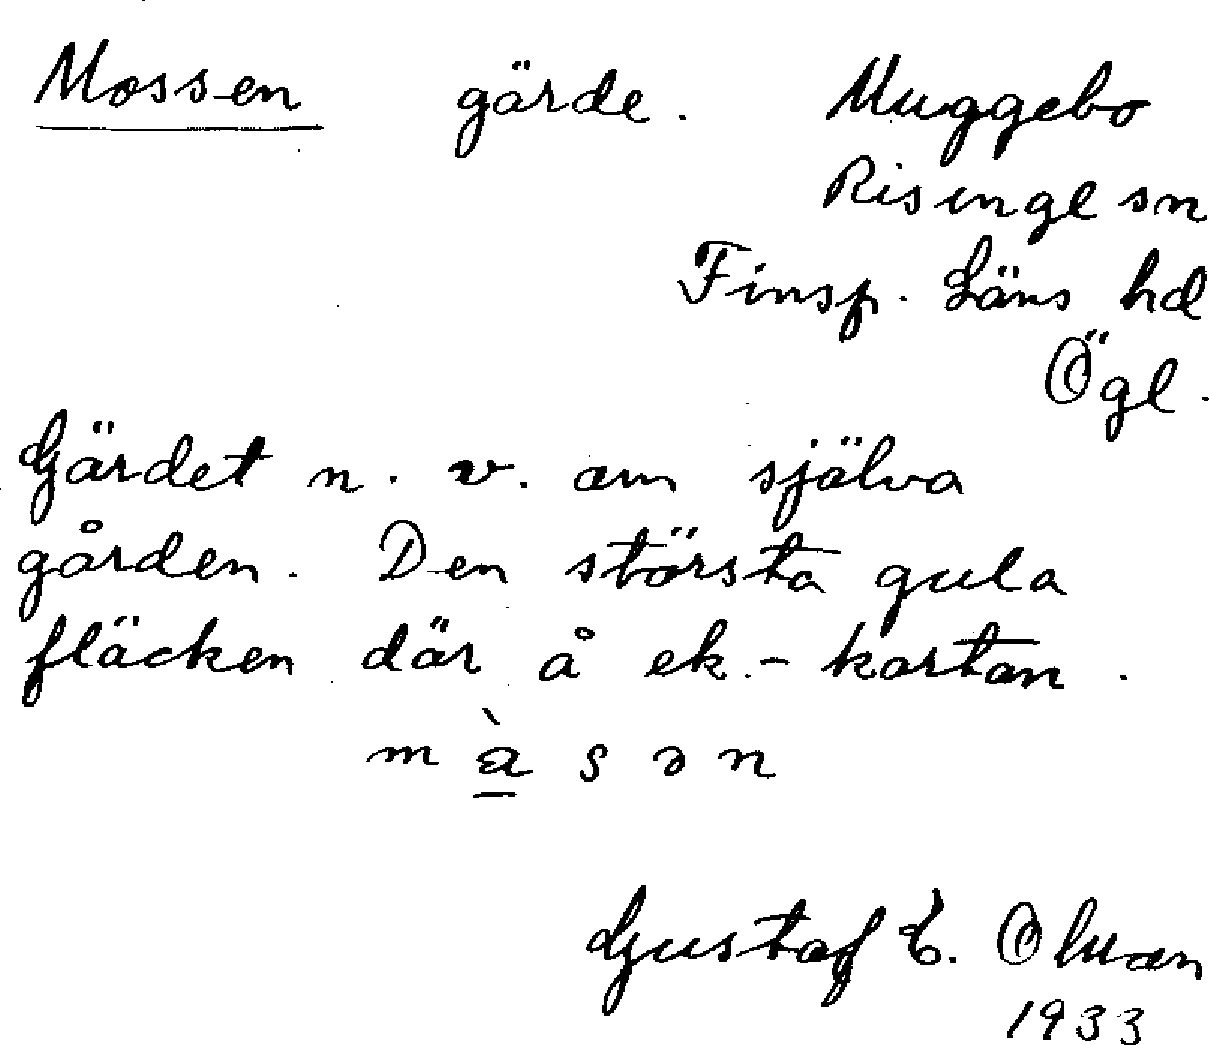 Mossen gärde. Muggebo
Risinge sn
Finsp. Läns hd
Ögl.
Gärdet n. v. om själva
gården. Den största gula
fläcken där å ek.-kartan.
m à s ə n
Gustaf E.
1933